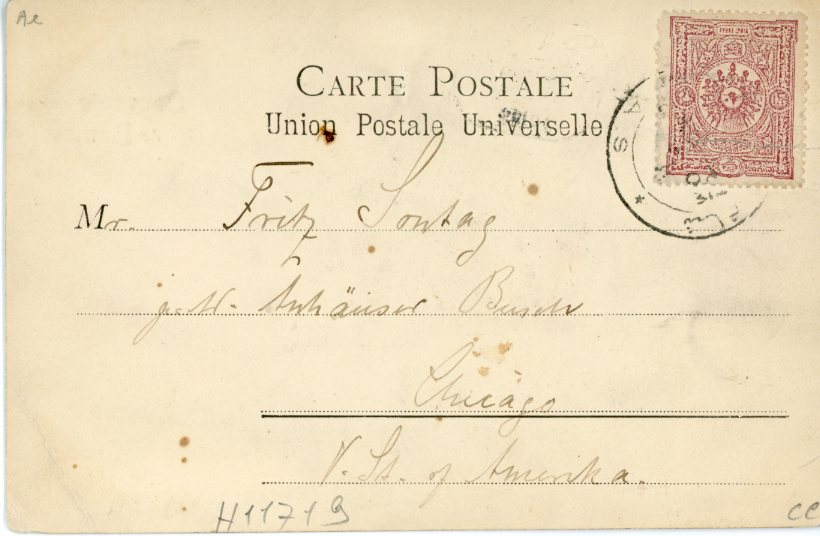 Ae
CARTE POSTALE
Union Postale Universelle
Mr. Fritz Sontag
Anhäuser Busch
Chicago
V. St. of Amerika.
H11719
CC